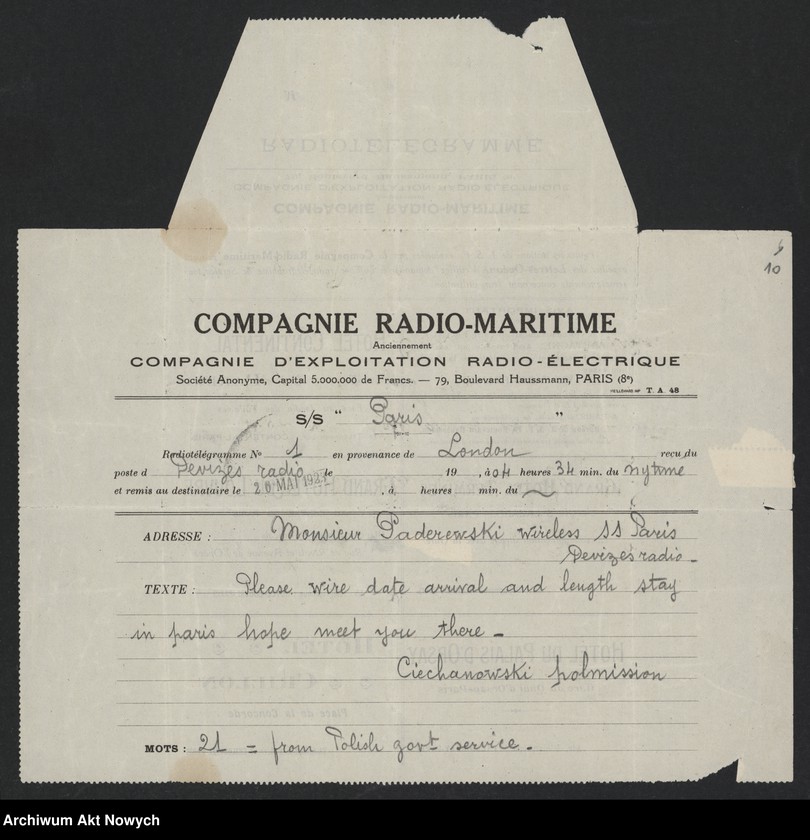 10
COMPAGNIE RADIO-MARITIME
Anciennement
COMPAGNIE D'EXPLOITATION RADIO-ÉLECTRIQUE
Société Anonyme, Capital 5.000.000 de Francs. — 79, Boulevard Haussmann, PARIS (8e)
T. A. 48
S/S " Paris "
Radiotélégramme No 1 en provenance de London recu du
poste d Devizes radio le 19 , à 04 heures 34 min. du
et remis au destinataire le 20 MAI , à heures min. du
ADRESSE : Monsieur Paderewski wireless SS Paris
Devizesradio -
TEXTE : Please wire date arrival and length stay
in paris hope meet you there -
Ciechanowski polmission
MOTS : 21 = from Polish govt service -
Archiwum Akt Nowych